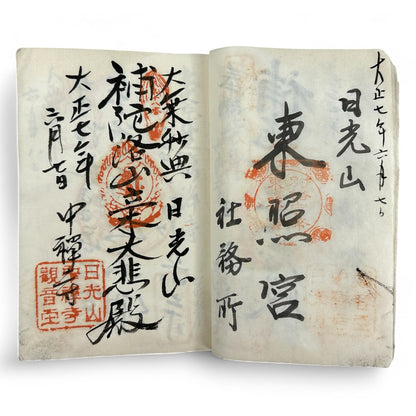 大正七年六月七日
日光山
東照宮
社務所
大乗妙典 日光山
補陀洛山 大悲殿
大正七年
六月七日
中禅寺
日光山
寺
觀音堂